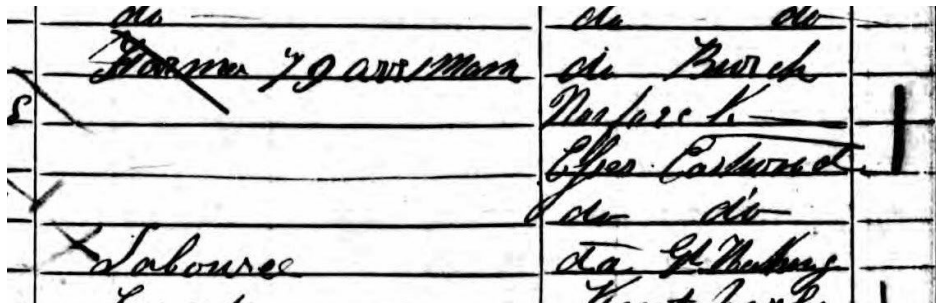 do do do
Farmer 79 acres 1 Man do Burch
Norfolk
Essex Eastwood
do do
Labourer do Gt Wakering